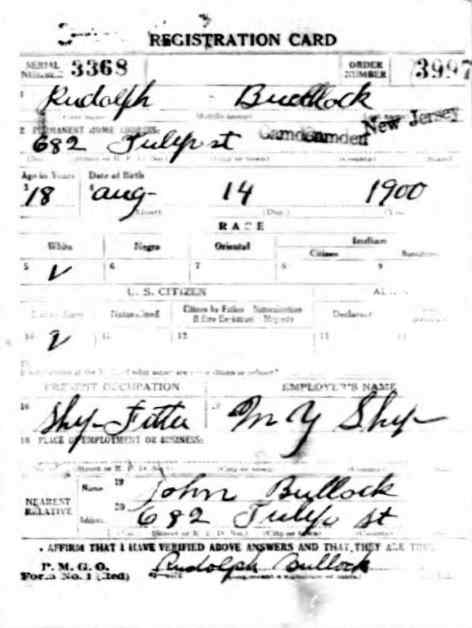 REGISTRATION CARD
SERIAL NUMBER 3368 ORDER NUMBER 3997
1 Rudolph Bullock
2 PERMANENT HOME ADDRESS:
682 Tulip st Camden Camden New Jersey
Age in Years Date of Birth
3 18 4 Aug 14 1900
RACE
White Negro Oriental Indian
Citizen
5 ✓ 6 7 8 9
U. S. CITIZEN
Naturalized Declarant
10 ✓ 11 12 13
PRESENT OCCUPATION EMPLOYER'S NAME
16 Ship Fitter 17 N Y Ship
18 PLACE OF EMPLOYMENT OR BUSINESS:
NEAREST RELATIVE
Name 19 John Bullock
Address 20 682 Tulip st
I AFFIRM THAT I HAVE VERIFIED ABOVE ANSWERS AND THAT THEY ARE TRUE
P. M. G. O.
Form No. 1 (Red) Rudolph Bullock